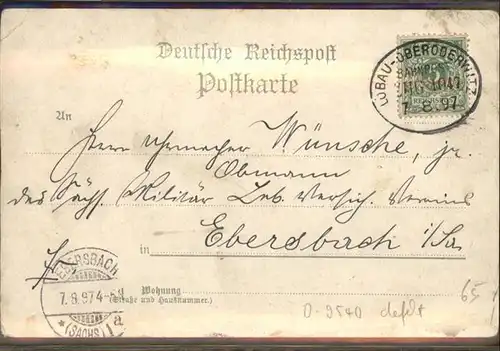 Deutsche Reichspost
Postkarte
LÖBAU-OBERODERWITZ
BAHNPOST
ZUG 1041
7. 8. 97
An
Herrn Uhrmacher Wünsche, jr.
Obmann
des Sächs. Militär Leb. Versich. Vereins
in Ebersbach i/Sa
EBERSBACH
7.8.97 4-
(SACHS)
a
Wohnung
(Straße und Hausnummer.)
0-9540 defekt
65